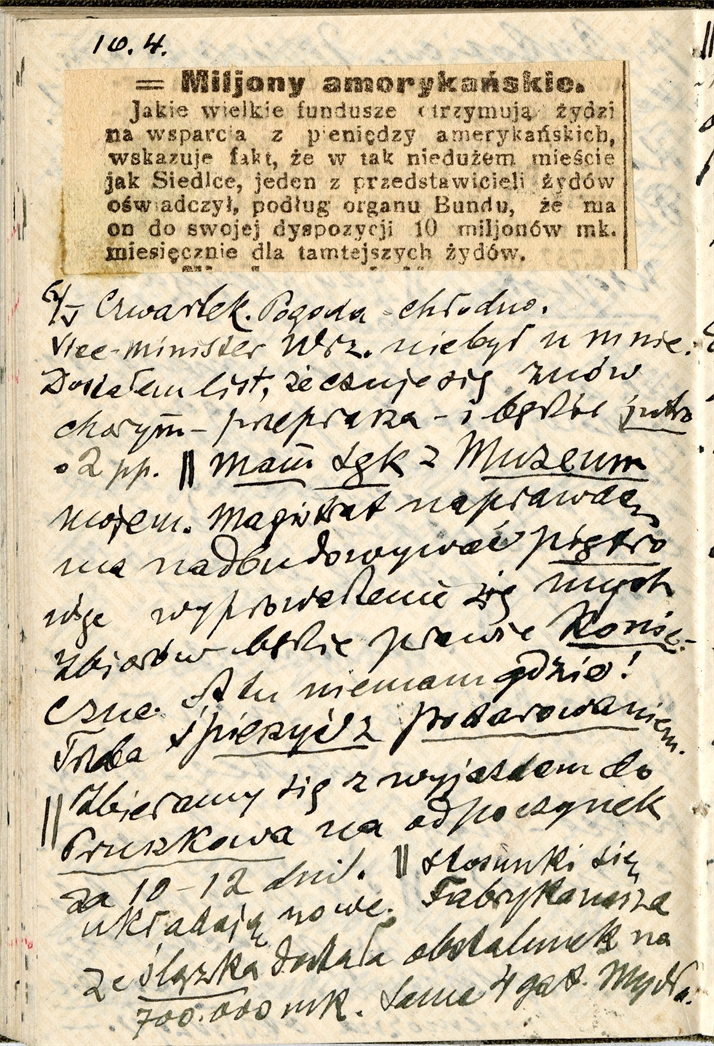 10.4.
= Miljony amorykańskie.
Jakie wielkie fundusze otrzymują żydzi
na wsparcia z pieniędzy amerykańskich,
wskazuje fakt, że w tak niedużem mieście
jak Siedlce, jeden z przedstawicieli żydów
oświadczył, podług organu Bundu, że ma
on do swojej dyspozycji 10 miljonów mk.
miesięcznie dla tamtejszych żydów.
Czwartek. Pogoda - chłodno.
Vice-minister Wrz. niebył u mnie.
Dostałem list, że czuje się znów
chorym - przeprasza - i będzie jutro
o 2 pp. || Mam sęk z Muzeum
mojem. Magistrat naprawdę
ma nadbudowywać piętro
więc wyprowadzenie się mych
zbiorów będzie prawie konie-
czne. A tu niemam gdzie!
Trzeba śpieszyć z podarowaniem.
|| Zbieramy się z wyjazdem do
Pruszkowa na odpoczynek
za 10-12 dni. || Stosunki się
układają nowe. Fabryka nasza
ze Śląska dostała obstalunek na
700.000 mk. Same 4 gat. Mydła.